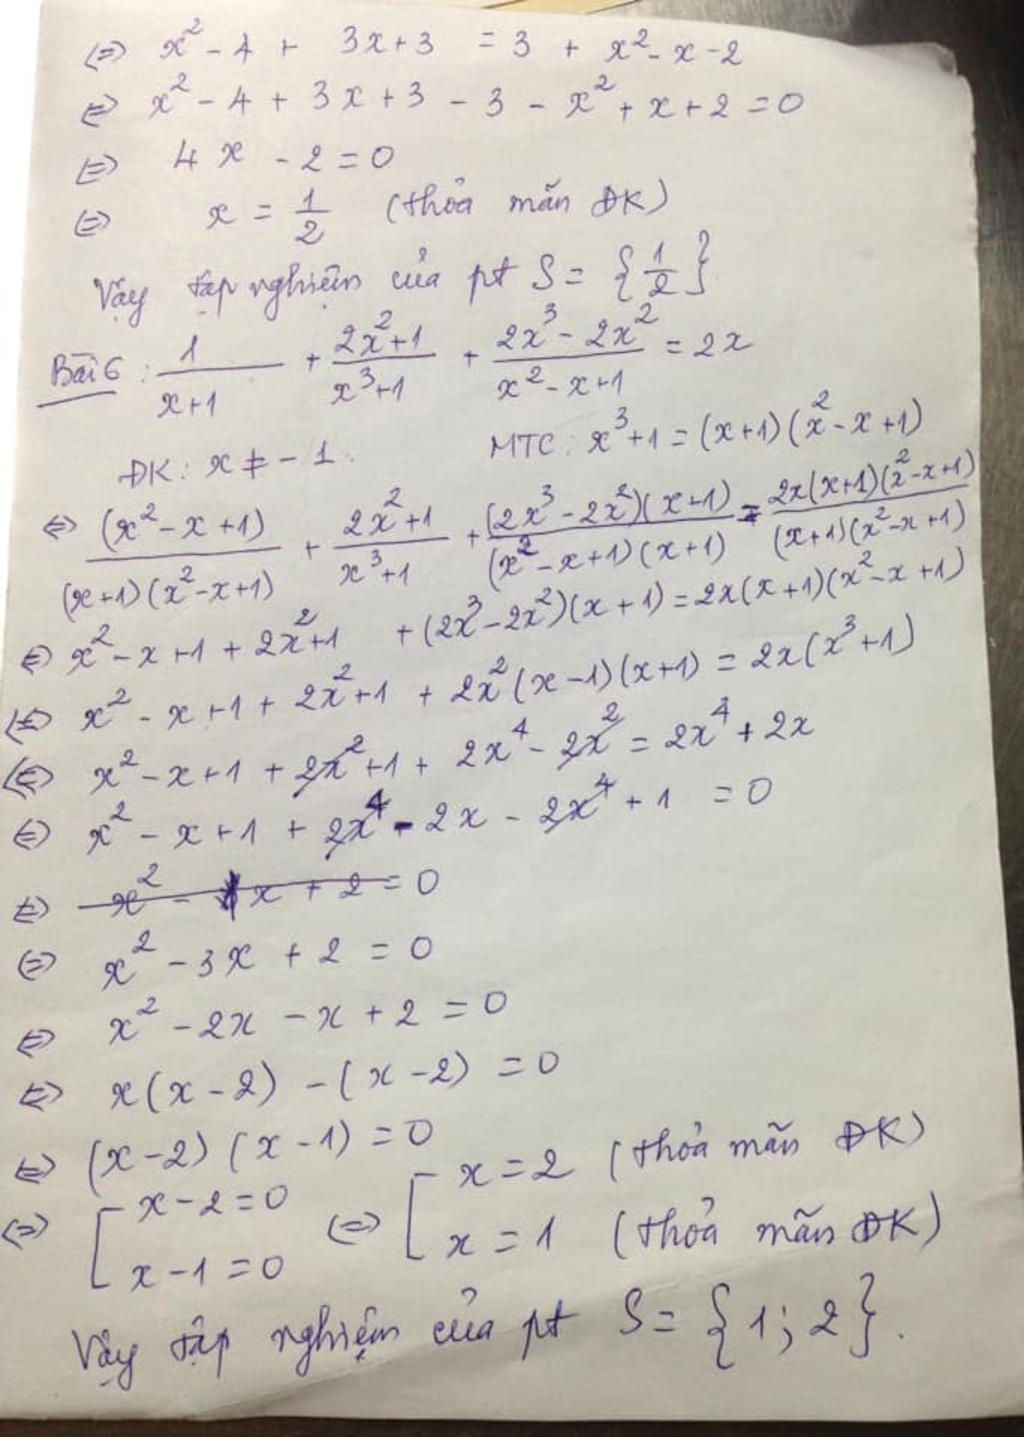 ⇔ x² - 4 + 3x + 3 = 3 + x² - x - 2
⇔ x² - 4 + 3x + 3 - 3 - x² + x + 2 = 0
⇔ 4x - 2 = 0
⇔ x = 1/2 (thỏa mãn ĐK)
Vậy tập nghiệm của pt S = {1/2}
Bài 6: 1/(x+1) + (2x²+1)/(x³+1) + (2x³ - 2x²)/(x² - x + 1) = 2x
ĐK: x ≠ -1. MTC: x³+1 = (x+1)(x² - x + 1)
⇔ (x² - x + 1)/((x+1)(x² - x + 1)) + (2x²+1)/(x³+1) + (2x³ - 2x²)(x+1)/((x² - x + 1)(x+1)) = 2x(x+1)(x² - x + 1)/((x+1)(x² - x + 1))
⇔ x² - x + 1 + 2x² + 1 + (2x³ - 2x²)(x+1) = 2x(x+1)(x² - x + 1)
⇔ x² - x + 1 + 2x² + 1 + 2x²(x-1)(x+1) = 2x(x³+1)
⇔ x² - x + 1 + 2x² + 1 + 2x⁴ - 2x² = 2x⁴ + 2x
⇔ x² - x + 1 + 2x⁴ - 2x - 2x⁴ + 1 = 0
⇔ x² - x + 2 = 0
⇔ x² - 3x + 2 = 0
⇔ x² - 2x - x + 2 = 0
⇔ x(x-2) - (x-2) = 0
⇔ (x-2)(x-1) = 0
⇔ [ x - 2 = 0 ⇔ [ x = 2 (thỏa mãn ĐK)
x - 1 = 0 x = 1 (thỏa mãn ĐK)
Vậy tập nghiệm của pt S = {1; 2}.